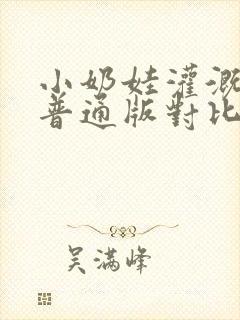 小奶娃灌溉
普通版對比
吴满峰